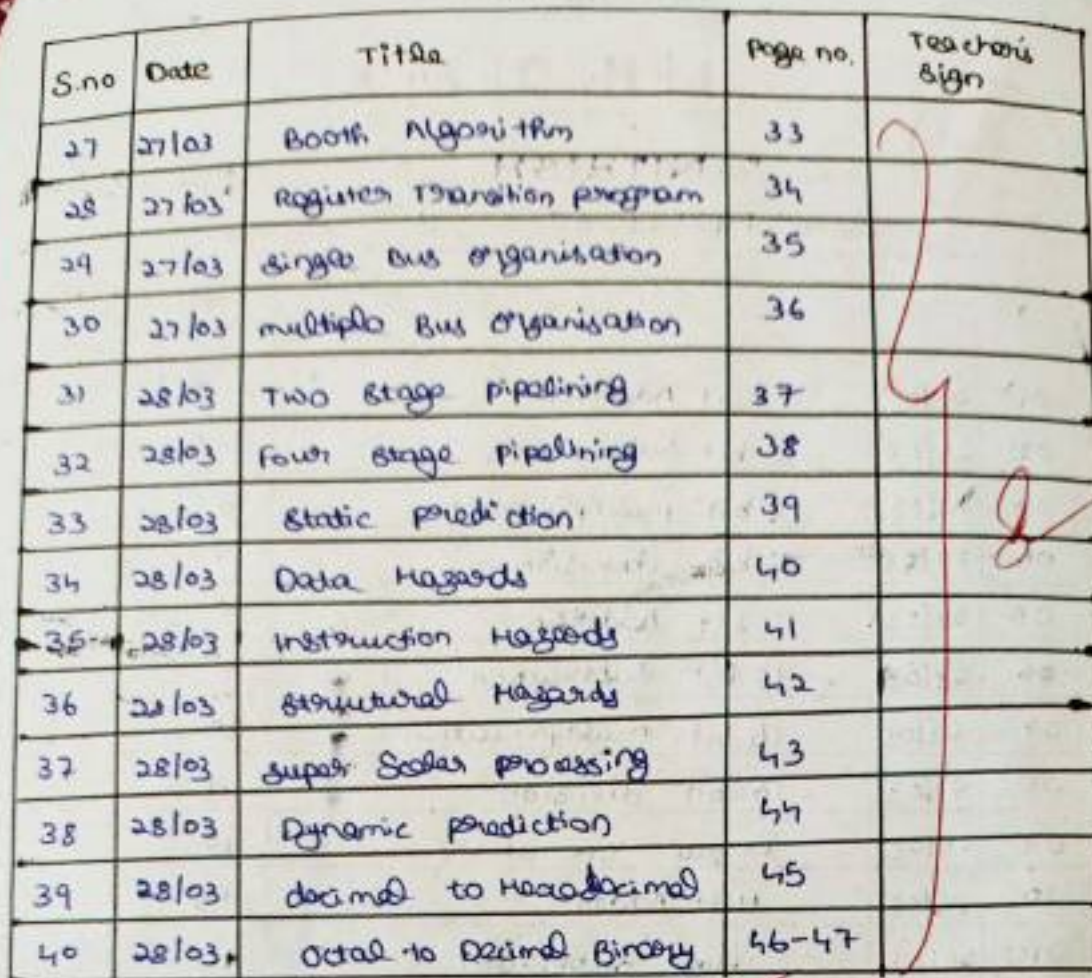 S.no Date Title Page no. Teacher's Sign
27 27/03 Booth Algorithm 33
28 27/03 Register Transition program 34
29 27/03 single Bus organisation 35
30 27/03 multiple Bus organisation 36
31 28/03 Two stage pipelining 37
32 28/03 Four stage pipelining 38
33 28/03 static prediction 39
34 28/03 Data Hazards 40
35 28/03 Instruction Hazards 41
36 28/03 strutural Hazards 42
37 28/03 super Scalar processing 43
38 28/03 Dynamic prediction 44
39 28/03 decimal to Hexadecimal 45
40 28/03 octal to Decimal Bincory 46-47